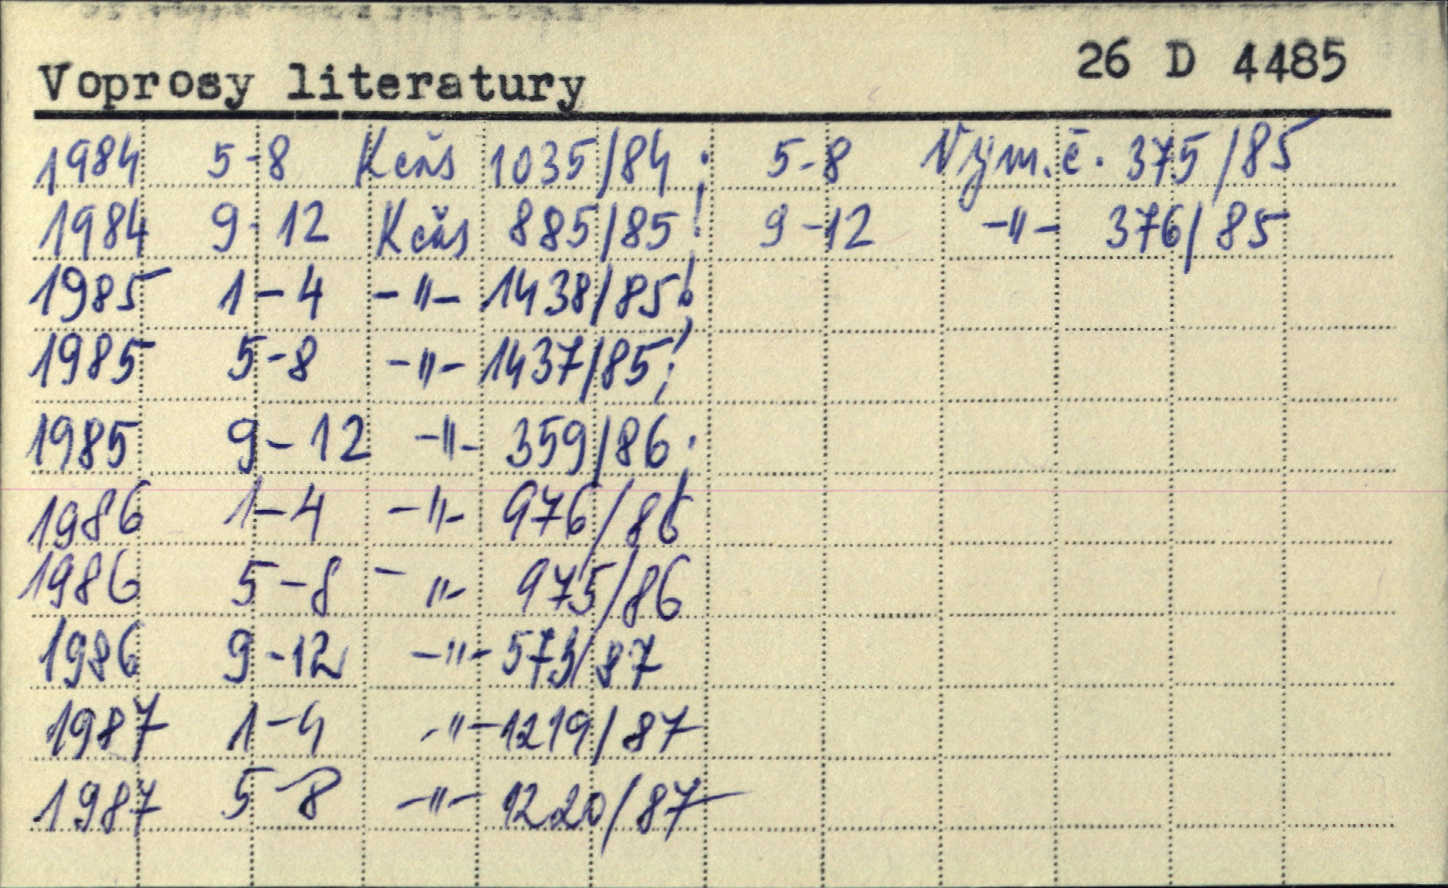 Voprosy literatury 26 D 4485
1984 5-8 Kčs 1035/84; 5-8 Výmn.č. 375/85
1984 9-12 Kčs 885/85! 9-12 -"- 376/85
1985 1-4 -"- 1438/85!
1985 5-8 -"- 1437/85!
1985 9-12 -"- 359/86.
1986 1-4 -"- 976/86
1986 5-8 -"- 975/86
1986 9-12 -"- 573/87
1987 1-4 -"- 1219/87
1987 5-8 -"- 1220/87